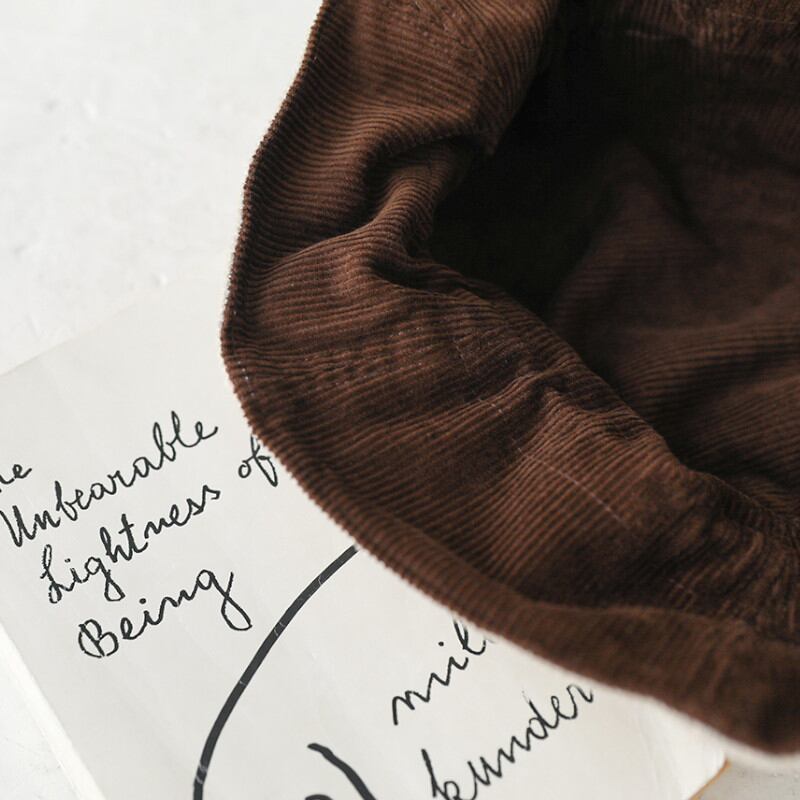 he
Unbearable
Lightness of
Being
mil
kunder